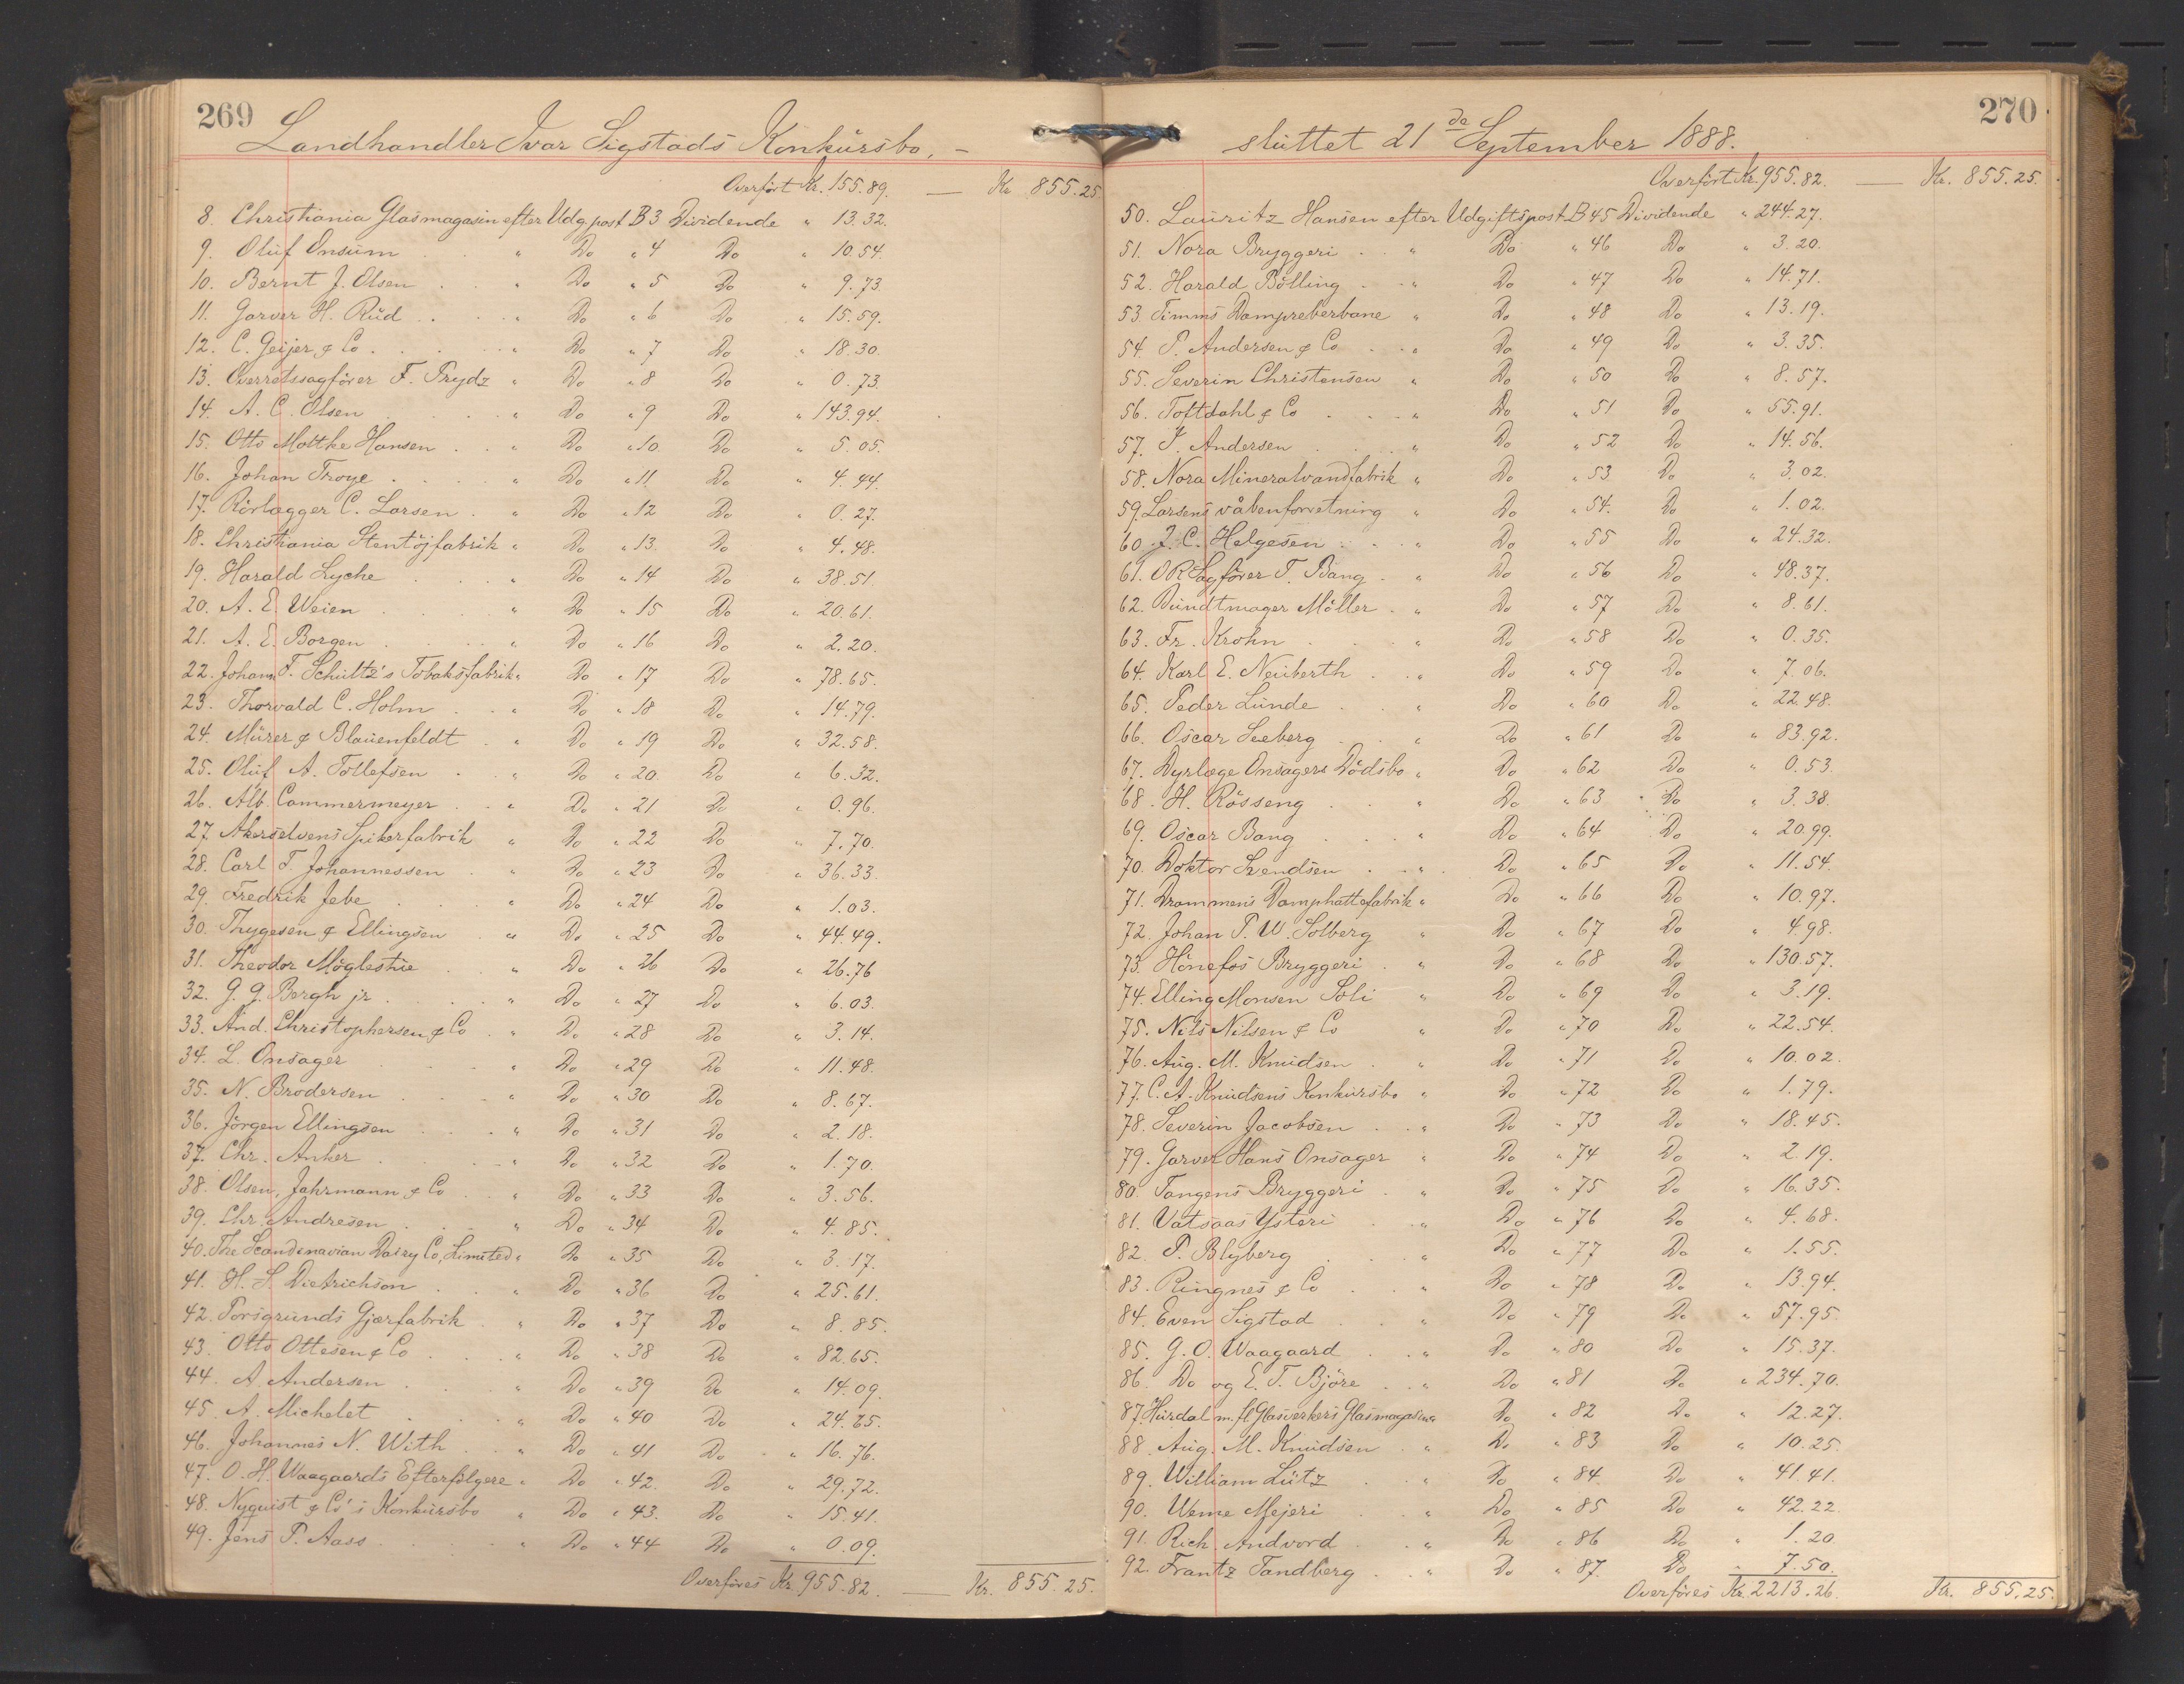 269
Landhandler Ivar Sigstads Konkursbo, -
Overført Kr. 155.89. — Kr. 855.25
8. Christiania Glasmagasin efter Udg post B 3 Dividende " 13.32.
9. Oluf Onsum . . " Do " 4 Do " 10.54.
10. Bernt J. Olsen . . " Do " 5 Do " 9.73.
11. Garver H. Rud . . . " Do " 6 Do " 15.59.
12. C. Geijer & Co . . . " Do " 7 Do " 18.30.
13. Overretssagfører F. Prydz " Do " 8 Do " 0.73.
14. A. C. Olsen . . . " Do " 9 Do " 143.94.
15. Otto Moltke Hansen . . " Do " 10 Do " 5.05.
16. Johan Troye . . . . " Do " 11 Do " 4.44.
17. Rørlægger C. Larsen . " Do " 12 Do " 0.27.
18. Christiania Stentøjfabrik " Do " 13 Do " 4.48.
19. Harald Lyche . . . " Do " 14 Do " 38.51.
20. A. E. Weien . . . . " Do " 15 Do " 20.61.
21. A. E. Borgen . . . " Do " 16 Do " 2.20.
22. Johan F. Schultz's Tobaksfabrik " Do " 17 Do " 78.65.
23. Thorvald C. Holm . . " Do " 18 Do " 14.79.
24. Mürer & Blauenfeldt . " Do " 19 Do " 32.58.
25. Oluf A. Tollefsen . . " Do " 20 Do " 6.32.
26. Alb. Cammermeyer . . " Do " 21 Do " 0.96.
27. Akerselvens Spikerfabrik " Do " 22 Do " 7.70.
28. Carl F. Johannessen . " Do " 23 Do " 36.33.
29. Fredrik Jebe . . . " Do " 24 Do " 1.03.
30. Thygesen & Ellingsen " Do " 25 Do " 44.49.
31. Theodor Møglestue . " Do " 26 Do " 26.76
32. G. G. Bergh jr . . . " Do " 27 Do " 6.03.
33. And. Christophersen & Co . " Do " 28 Do " 3.14.
34. L. Onsager . . . . " Do " 29 Do " 11.48.
35. N. Brodersen . . . " Do " 30 Do " 8.67.
36. Jørgen Ellingsen . . . " Do " 31 Do " 2.18.
37. Chr. Anker . . . " Do " 32 Do " 1.70.
38. Olsen, Jahrmann & Co . " Do " 33 Do " 3.56.
39. Chr. Andresen . . . " Do " 34 Do " 4.85.
40. The Scandenavian Dairy Co, Limited " Do " 35 Do " 3.17.
41. H. S. Dietrichson . . " Do " 36 Do " 25.61.
42. Porsgrunds Gjærfabrik . " Do " 37 Do " 8.85.
43. Otto Ottesen & Co . . . " Do " 38 Do " 82.65.
44. A. Andersen . . . " Do " 39 Do " 14.09.
45. A. Michelet . . . " Do " 40 Do " 24.85.
46. Johannes N. With . . " Do " 41 Do " 16.76.
47. O. H. Waagaards Efterfølgere " Do " 42. Do " 29.72.
48. Nyquist & Co's Konkursbo " Do " 43. Do " 15.41.
49. Jens P. Aass . . . . " Do " 44 Do " 0.09.
Overføres Kr. 955.82. — Kr. 855.25.
270
sluttet 21de September 1888.
Overført Kr. 955.82. — Kr. 855.25.
50. Lauritz Hansen efter Udgiftspost B 45 Dividende " 244.27.
51. Nora Bryggeri . . " Do " 46 Do " 3.20.
52. Harald Bølling . . " Do " 47 Do " 14.71.
53. Timms Dampreberbane " Do " 48 Do " 13.19.
54. P. Andersen & Co . . " Do " 49 Do " 3.35.
55. Severin Christensen " Do " 50 Do " 8.57.
56. Toftdahl & Co . . . " Do " 51 Do " 55.91.
57. J. Andersen . . . " Do " 52 Do " 14.56.
58. Nora Mineralvandfabrik " Do " 53 Do " 3.02.
59. Larsens våbenforretning " Do " 54. Do " 1.02.
60. J. C. Helgesen . . . " Do " 55 Do " 24.32.
61. ORSagfører T. Bang . " Do " 56 Do " 48.37.
62. Bundtmager Møller . " Do " 57 Do " 8.61.
63. Fr. Krohn . . . " Do " 58 Do " 0.35.
64. Karl E. Neuberth . . " Do " 59 Do " 7.06.
65. Peder Lunde . . " Do " 60 Do " 22.48.
66. Oscar Seeberg . . " Do " 61 Do " 83.92.
67. Dyrlæge Onsagers Dødsbo " Do " 62 Do " 0.53.
68. H. Røsseng . . " Do " 63 Do " 3.38.
69. Oscar Bang . . . " Do " 64 Do " 20.99.
70. Doktor Svendsen . . " Do " 65 Do " 11.54.
71. Drammens Damphattefabrik " Do " 66 Do " 10.97.
72. Johan P. W. Solberg " Do " 67 Do " 4.98.
73. Hønefos Bryggeri . " Do " 68 Do " 130.57.
74. Elling Monsen Soli " Do " 69 Do " 3.19.
75. Nils Nilsen & Co " Do " 70 Do " 22.54.
76. Aug. M. Knudsen . " Do " 71 Do " 10.02.
77. C. A. Knudsens Konkursbo " Do " 72 Do " 1.79.
78. Severin Jacobsen . . " Do " 73 Do " 18.45.
79. Garver Hans Onsager " Do " 74 Do " 2.19.
80. Tangens Bryggeri . " Do " 75 Do " 16.35.
81. Vatsaas Ysteri . . " Do " 76 Do " 4.68.
82. P. Blyberg . . . " Do " 77 Do " 1.55.
83. Ringnes & Co . . " Do " 78 Do " 13.94.
84. Even Sigstad . . " Do " 79 Do " 57.95.
85. G. O. Waagaard . . " Do " 80 Do " 15.37.
86. Do og E. T. Bjøre . . " Do " 81 Do " 234.70.
87. Hurdal m. fl Glasverkers Glasmagasin " Do " 82 Do " 12.27.
88. Aug. M. Knudsen . " Do " 83 Do " 10.25.
89. William Lütz . . " Do " 84. Do " 41.41.
90. Weme Mejeri . . " Do " 85 Do " 42.22
91. Rich. Andvord . . " Do " 86 Do " 1.20
92. Frantz Tandberg . . " Do " 87. Do " 7.50.
Overføres Kr. 2213.26. Kr. 855.25.